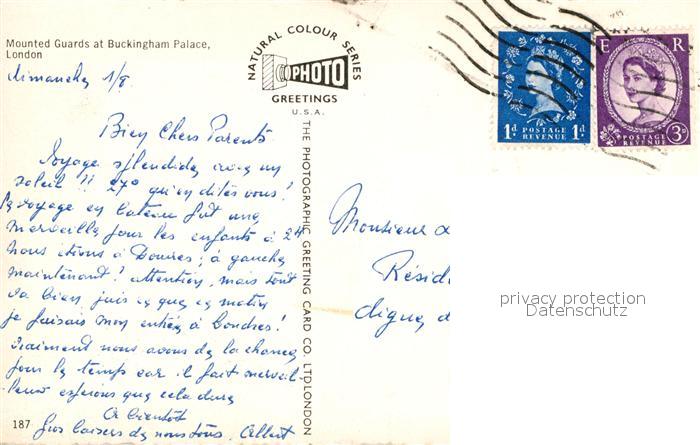 Mounted Guards at Buckingham Palace,
London
dimanche 1/8
Bien Chers Parents
Voyage splendide avec un
soleil !! 27° qu'en dites vous!
Le voyage en bateau fut une
merveille pour les enfants à 2H
nous étions à Douvres; à gauche
maintenant! attention, mais tout
va bien, puis ce que ce matin
je faisais mon entrée à Londres!
vraiment nous avons de la chance
pour le temps car il fait merveil-
leux espérons que cela dure
A bientôt
Gros baisers de nous tous. Albert
187
NATURAL COLOUR SERIES
PHOTO
GREETINGS
U.S.A.
THE PHOTOGRAPHIC GREETING CARD CO. LTD LONDON
1d POSTAGE REVENUE 1d
E R
POSTAGE REVENUE 3D
Monsieur
Résid
digue d
privacy protection
Datenschutz